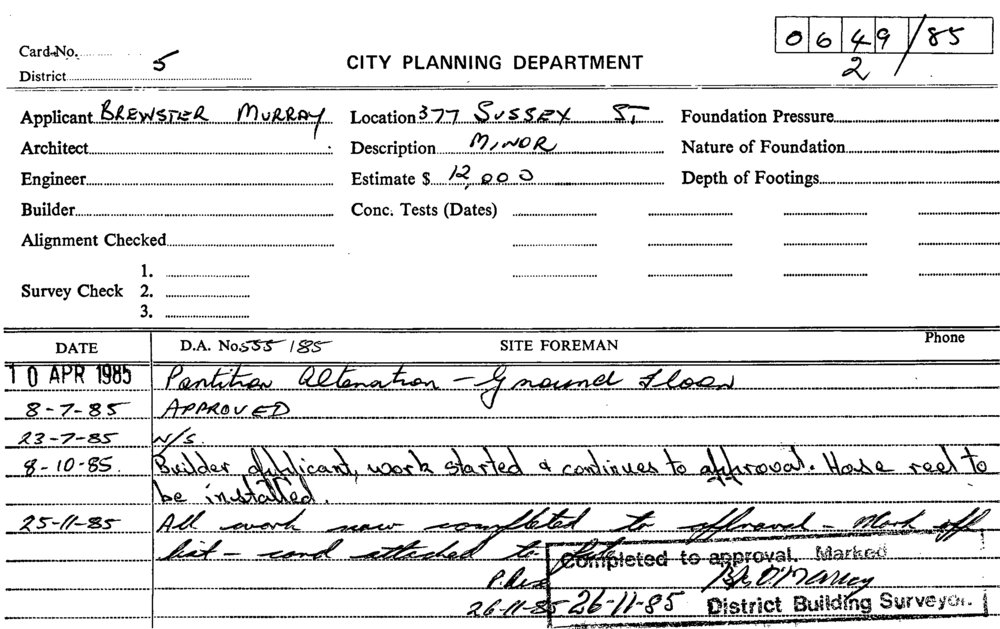 Card No.
0649/85
2
District 5
CITY PLANNING DEPARTMENT
Applicant BREWSTER MURRAY Location 377 SUSSEX ST Foundation Pressure
Architect Description MINOR Nature of Foundation
Engineer Estimate $ 12,000 Depth of Footings
Builder Conc. Tests (Dates)
Alignment Checked
1.
Survey Check 2.
3.
DATE D.A. No 555/85 SITE FOREMAN Phone
10 APR 1985 Partition Alteration - Ground Floor
8-7-85 APPROVED
23-7-85 N/S.
8-10-85. Builder applicant, work started & continues to approval. Hose reel to
be installed.
25-11-85 All work now completed to approval - Mark off
list - card attached to
Completed to approval. Marked
26-11-85 26-11-85 District Building Surveyor.